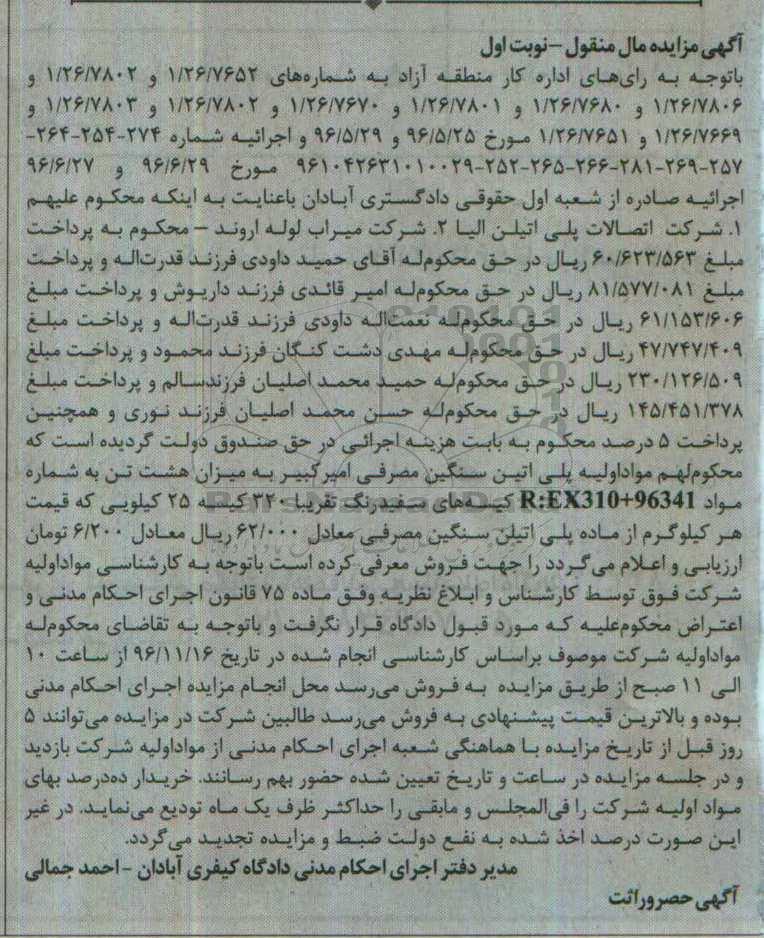 آگهی مزایده مال منقول – نوبت اول
باتوجه به رای‌های اداره کار منطقه آزاد به شماره‌های ۱/۲۶/۷۶۵۲ و ۱/۲۶/۷۸۰۲ و
۱/۲۶/۷۸۰۶ و ۱/۲۶/۷۶۸۰ و ۱/۲۶/۷۸۰۱ و ۱/۲۶/۷۶۷۰ و ۱/۲۶/۷۸۰۲ و ۱/۲۶/۷۸۰۳ و
۱/۲۶/۷۶۶۹ و ۱/۲۶/۷۶۵۱ مورخ ۹۶/۵/۲۵ و ۹۶/۵/۲۹ و اجرائیه شماره ۲۷۴-۲۵۴-۲۶۴-
۲۵۷-۲۶۹-۲۸۱-۲۶۶-۲۶۵-۲۵۲-۹۶۱۰۴۲۶۳۱۰۱۰۰۲۹ مورخ ۹۶/۶/۲۹ و ۹۶/۶/۲۷
اجرائیه صادره از شعبه اول حقوقی دادگستری آبادان باعنایت به اینکه محکوم علیهم
۱. شرکت اتصالات پلی اتیلن الیا ۲. شرکت میراب لوله اروند – محکوم به پرداخت
مبلغ ۶۰/۶۲۳/۵۶۳ ریال در حق محکوم‌له آقای حمید داودی فرزند قدرت‌اله و پرداخت
مبلغ ۸۱/۵۷۷/۰۸۱ ریال در حق محکوم‌له امیر قائدی فرزند داریوش و پرداخت مبلغ
۶۱/۱۵۳/۶۰۶ ریال در حق محکوم‌له نعمت‌اله داودی فرزند قدرت‌اله و پرداخت مبلغ
۴۷/۷۴۷/۴۰۹ ریال در حق محکوم‌له مهدی دشت کنگان فرزند محمود و پرداخت مبلغ
۲۳۰/۱۲۶/۵۰۹ ریال در حق محکوم‌له حمید محمد اصلیان فرزند سالم و پرداخت مبلغ
۱۴۵/۴۵۱/۳۷۸ ریال در حق محکوم‌له حسن محمد اصلیان فرزند نوری و همچنین
پرداخت ۵ درصد محکوم به بابت هزینه اجرائی در حق صندوق دولت گردیده است که
محکوم‌لهم مواداولیه پلی اتین سنگین مصرفی امیرکبیر به میزان هشت تن به شماره
مواد R:EX310+96341 کیسه‌های سفیدرنگ تقریبا ۳۲۰ کیسه ۲۵ کیلویی که قیمت
هر کیلوگرم از ماده پلی اتیلن سنگین مصرفی معادل ۶۲/۰۰۰ ریال معادل ۶/۲۰۰ تومان
ارزیابی و اعلام می‌گردد را جهت فروش معرفی کرده است باتوجه به کارشناسی مواداولیه
شرکت فوق توسط کارشناس و ابلاغ نظریه وفق ماده ۷۵ قانون اجرای احکام مدنی و
اعتراض محکوم‌علیه که مورد قبول دادگاه قرار نگرفت و باتوجه به تقاضای محکوم‌له
مواداولیه شرکت موصوف براساس کارشناسی انجام شده در تاریخ ۹۶/۱۱/۱۶ از ساعت ۱۰
الی ۱۱ صبح از طریق مزایده به فروش می‌رسد محل انجام مزایده اجرای احکام مدنی
بوده و بالاترین قیمت پیشنهادی به فروش می‌رسد طالبین شرکت در مزایده می‌توانند ۵
روز قبل از تاریخ مزایده با هماهنگی شعبه اجرای احکام مدنی از مواداولیه شرکت بازدید
و در جلسه مزایده در ساعت و تاریخ تعیین شده حضور بهم رسانند. خریدار ده‌درصد بهای
مواد اولیه شرکت را فی‌المجلس و مابقی را حداکثر ظرف یک ماه تودیع می‌نماید. در غیر
این صورت درصد اخذ شده به نفع دولت ضبط و مزایده تجدید می‌گردد.
مدیر دفتر اجرای احکام مدنی دادگاه کیفری آبادان – احمد جمالی
آگهی حصروراثت